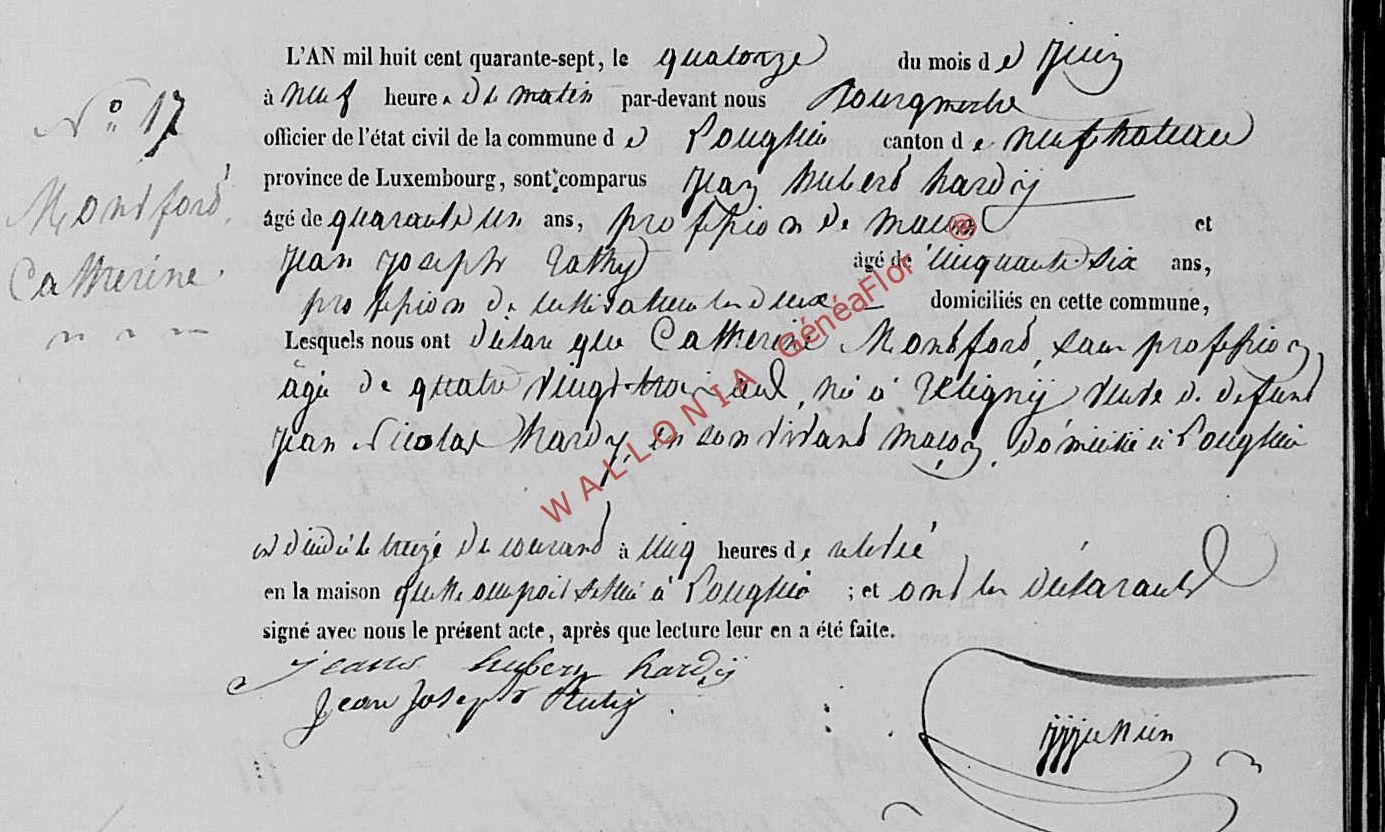 N° 17
Montford
Catherine
L'AN mil huit cent quarante-sept, le quatorze du mois de Juin
à neuf heures de matin par-devant nous Bourgmestre
officier de l'état civil de la commune de Longlier canton de neufchateau
province de Luxembourg, sont comparus Jean hubert hardy
âgé de quarante un ans, profession de macon et
Jean Joseph âgé de cinquante six ans,
profession de cultivateur les deux domiciliés en cette commune,
Lesquels nous ont déclaré que Catherine Montford, sans profession
âgée de quatre vingt trois ans, née à Volaigny veuve de defunt
Jean Nicolas hardy, en son vivant maçon, domicilié à Longlier
est décédée le treize de courant à cinq heures de relevée
en la maison quelle occupoit située à Longlier ; et ont les déclarants
signé avec nous le présent acte, après que lecture leur en a été faite.
jean hubert hardÿ
Jean Joseph
WALLONIA GénéaFlor®